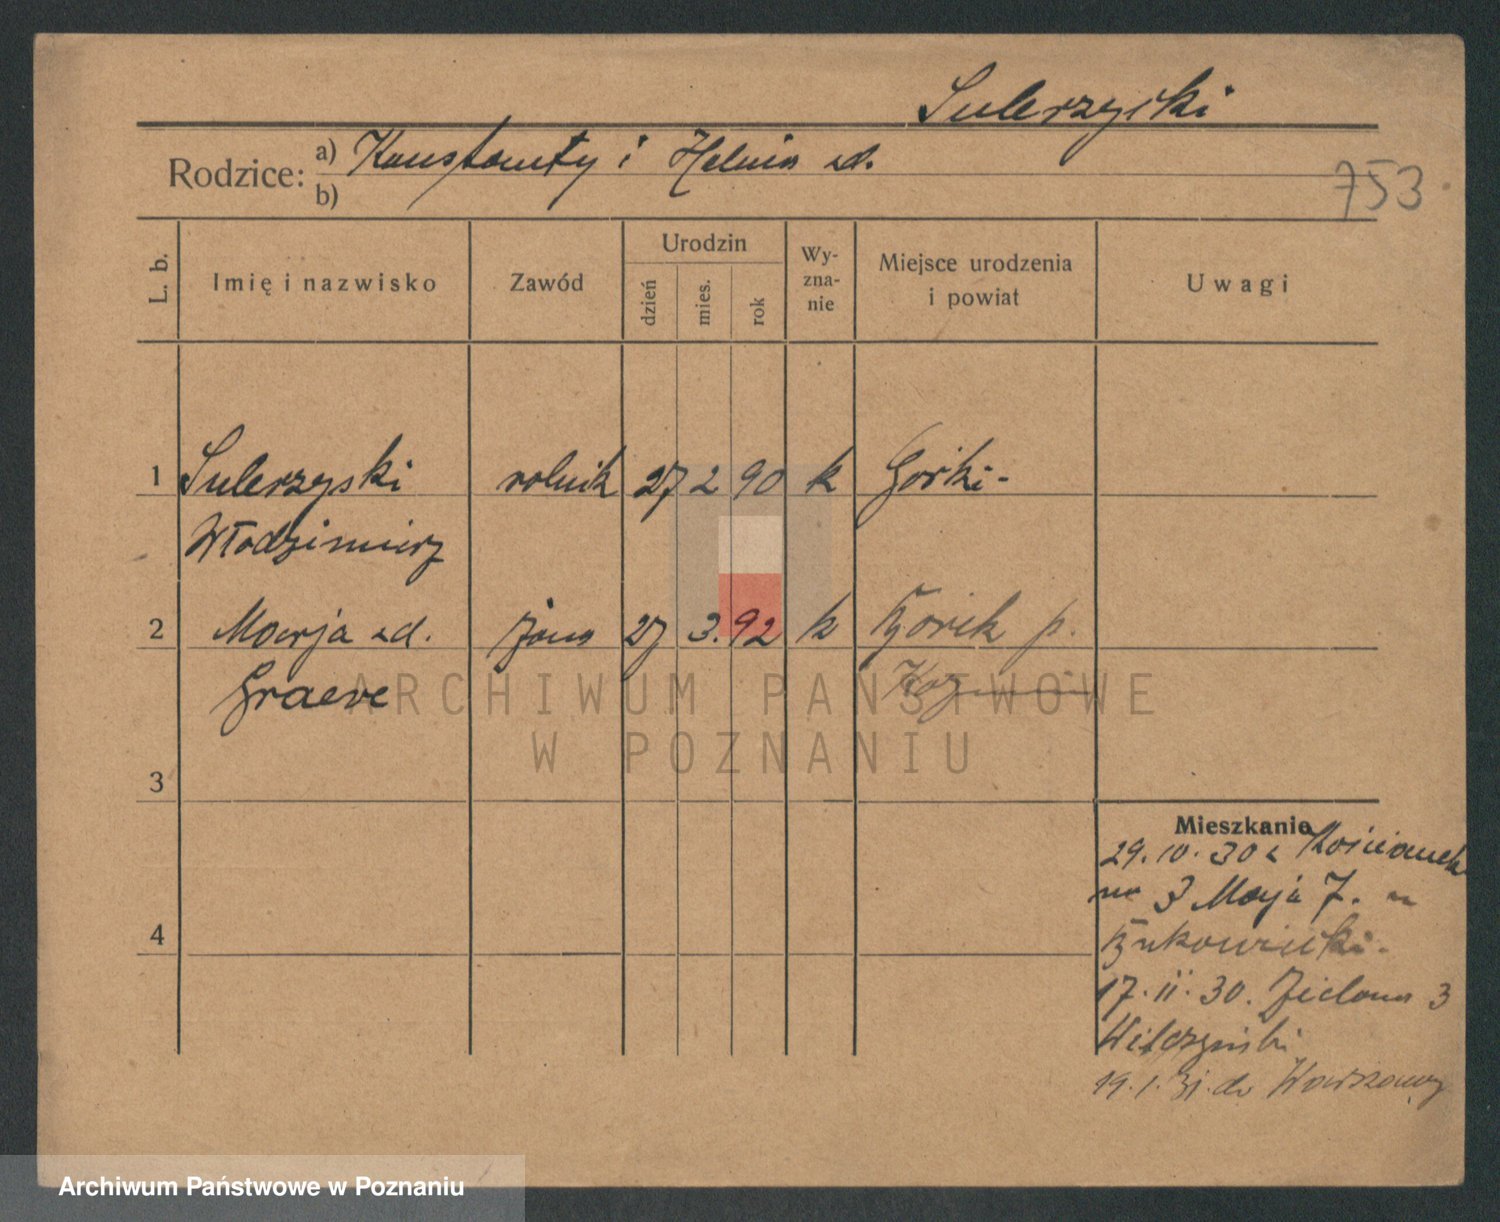 Sulerzyski
Rodzice: a) Konstanty i Helena zd.
b)
753
L. b.
Imię i nazwisko
Zawód
Urodzin
dzień
mies.
rok
Wy-
zna-
nie
Miejsce urodzenia
i powiat
Uwagi
1 Sulerzyski rolnik 27 2 90 k Górki-
Włodzimierz
2 Marja zd. żona 27 3. 92 k p.
Graeve
ARCHIWUM PAŃSTWOWE
W POZNANIU
3
Mieszkanie
29.10.30 z Kościanek
na 3 Maja 7. u
4
17.11.30. Zielona 3
Wilczyński
19.1.31. do Warszawy
Archiwum Państwowe w Poznaniu